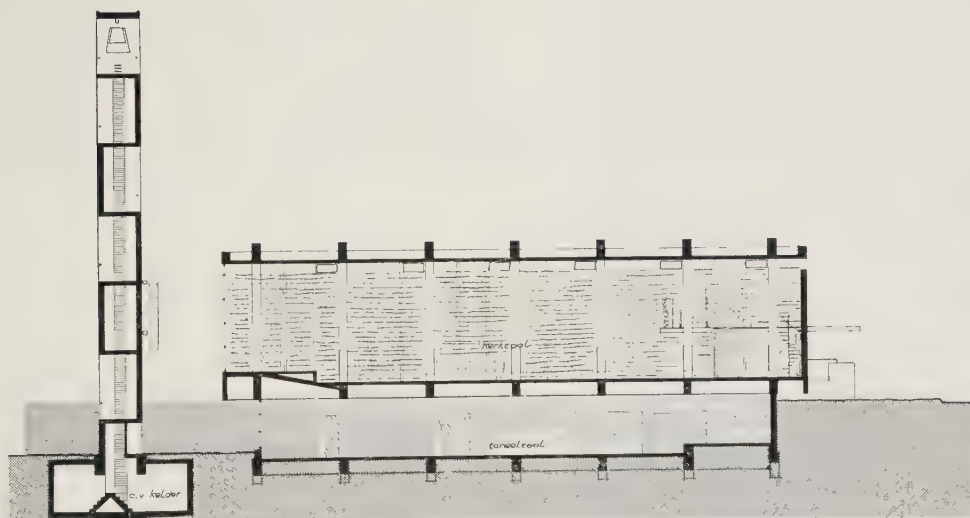 kerkzaal
toneelzaal
c.v kelder